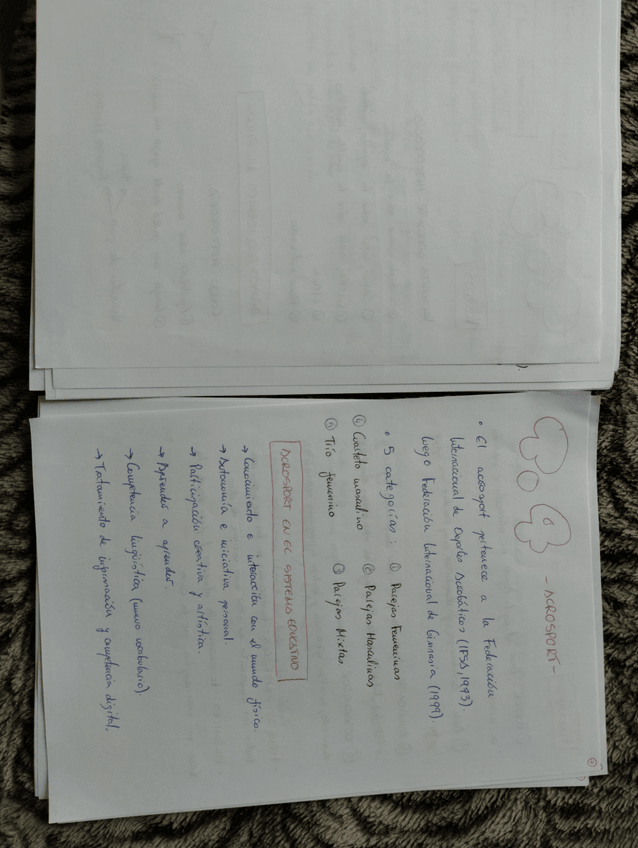 - ACROSPORT -
• El acrosport pertenece a la Federación
Internacional de Deportes Acrobáticos (IFSA, 1973).
luego Federación Internacional de Gimnasia (1999).
• 5 categorías: ① Parejas Femeninas
④ Cuarteto masculino ② Parejas Masculinas
⑤ Trío femenino ③ Parejas Mixtas
ACROSPORT EN EL SISTEMA EDUCATIVO
→ Conocimiento e interacción con el mundo físico.
→ Autonomía e iniciativa personal.
→ Participación creativa y artística.
→ Aprender a aprender.
→ Competencia lingüística (nuevo vocabulario).
→ Tratamiento de información y competencia digital.